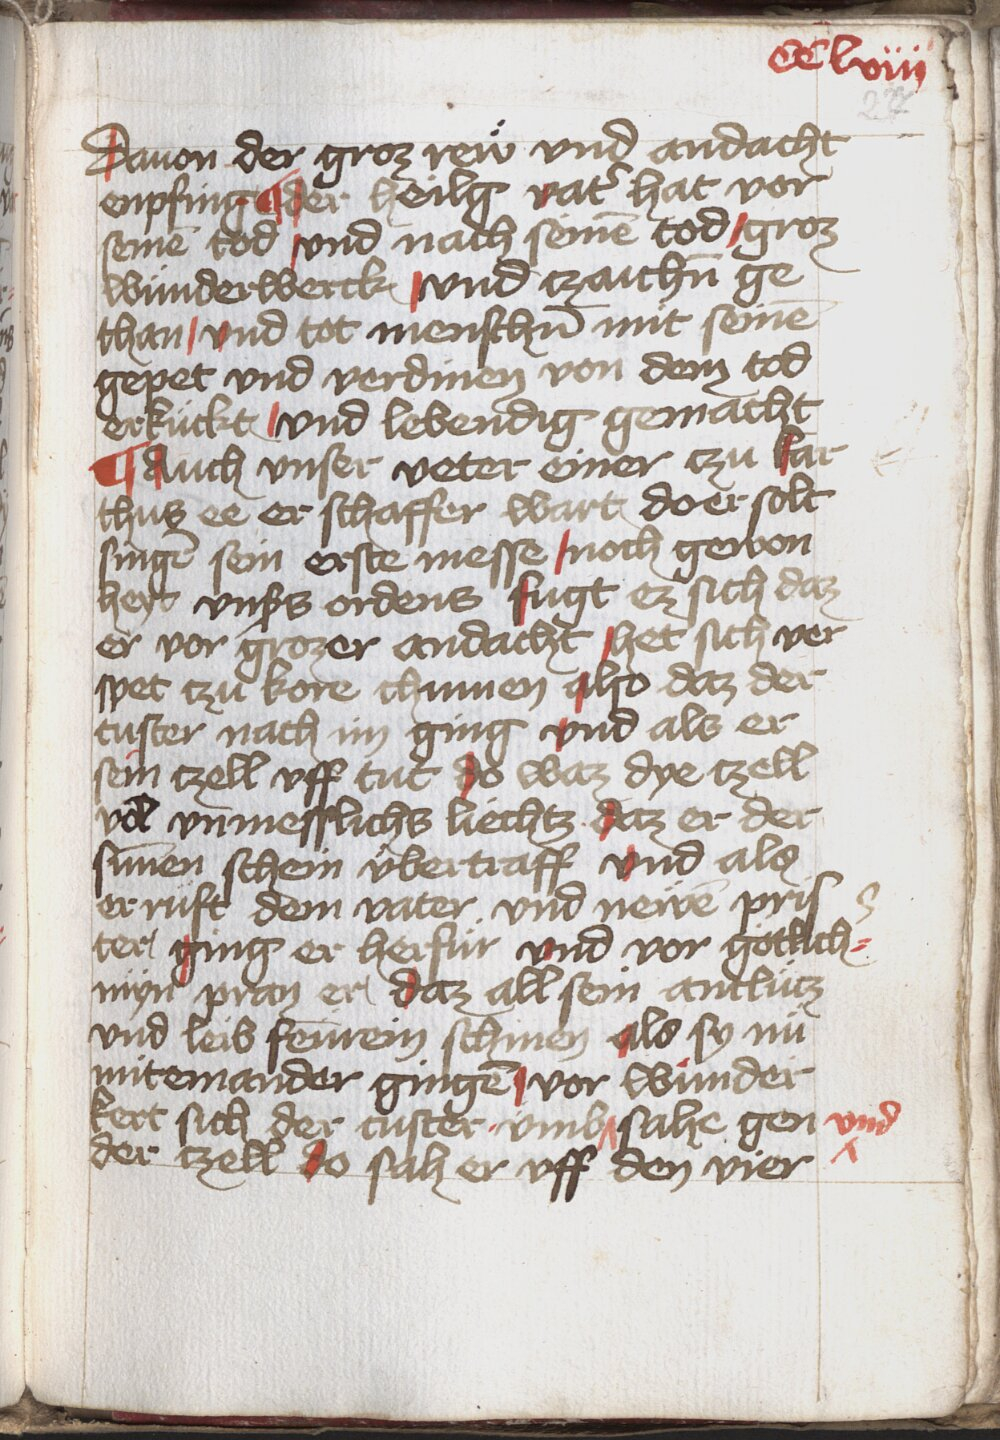 cclviii
237
Dauon der groz rew und andacht
enpfing ¶ der heilg vat͛ hat vor
seinē tod und nach seinē tod groz
wunderwerck und czaichn̄ ge
than und tot menschn̄ mit seinē
gepet vnd verdinen von dem tod
erkuckt und lebendig gemacht
¶ Auch vnser veter einer czu kar
thus ee er schaffer wart do er solt
singē sein erste messe noch gewon
heyt vnßs ordens fugt ez sich daz
er vor grozer andacht het sich ver
spet czu kore chumen also daz der
custer nach im ging vnd als er
sein czell vff tut do waz dye czell
vol vnmesslichs liechtz daz er der
sūnen schein vbertraff vnd als
er ruft dem vater vnd newē pris
ter ging er herfur vnd vor gotlich=
myn pran er daz all sein antlucz
vnd leib feurein schinen als sy nu
miteinander gingē vor wunder
kert sich der custer vmb ʌ sahe gen vnd
der czell do sah er vff den vier